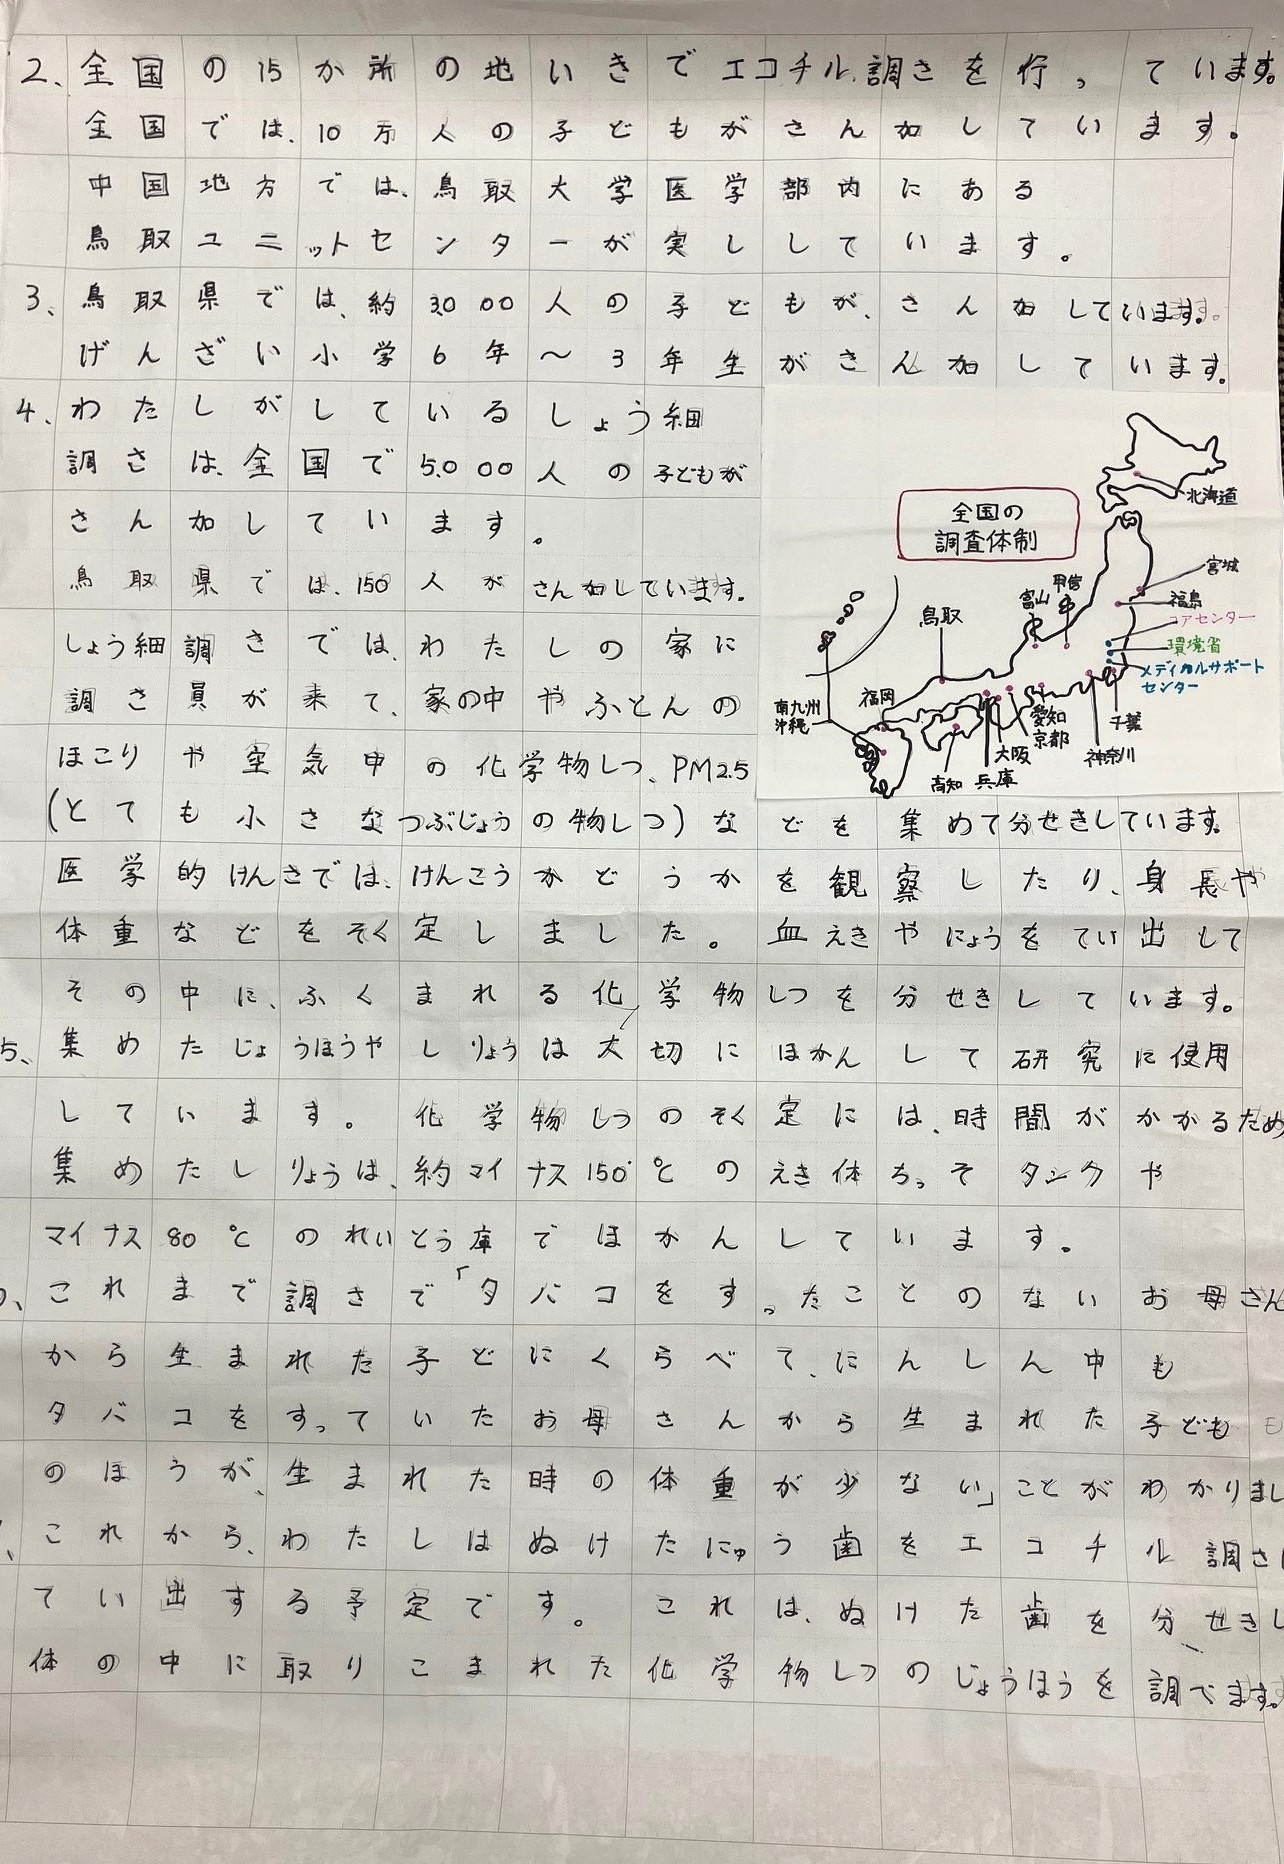 2、全国の15か所の地いきでエコチル調さを行っています。
全国では、10万人の子どもがさん加しています。
中国地方では、鳥取大学医学部内にある
鳥取ユニットセンターが実ししています。
3、鳥取県では、約3000人の子どもが、さん加しています。
げんざい小学6年〜3年生がさん加しています。
4、わたしがしているしょう細
調さは、全国で5000人の子どもが
さん加しています。
鳥取県では、150人がさん加しています。
しょう細調さでは、わたしの家に
調さ員が来て、家の中やふとんの
ほこりや空気中の化学物しつ、PM2.5
(とても小さなつぶじょうの物しつ)などを集めて分せきしています。
医学的けんさでは、けんこうかどうかを観察したり、身長や
体重などをそく定しました。血えきやにょうをてい出して
その中に、ふくまれる化学物しつを分せきしています。
5、集めたじょうほうやしりょうは大切にほかんして研究に使用
しています。化学物しつのそく定には、時間がかかるため
集めたしりょうは、約マイナス150℃のえき体ちっそタンクや
マイナス80℃のれいとう庫でほかんしています。
、これまで調さで「タバコをすったことのないお母さん
から生まれた子どにくらべて、にんしん中も
タバコをすっていたお母さんから生まれた子ども
のほうが、生まれた時の体重が少ない」ことがわかりまし
、これから、わたしはぬけたにゅう歯をエコチル調さ
てい出する予定です。これは、ぬけた歯を分せきし
体の中に取りこまれた化学物しつのじょうほうを調べます。
全国の
調査体制
北海道
宮城
福島
コアセンター
環境省
メディカルサポート
センター
甲信
富山
鳥取
福岡
南九州
沖縄
千葉
神奈川
愛知
京都
大阪
兵庫
高知